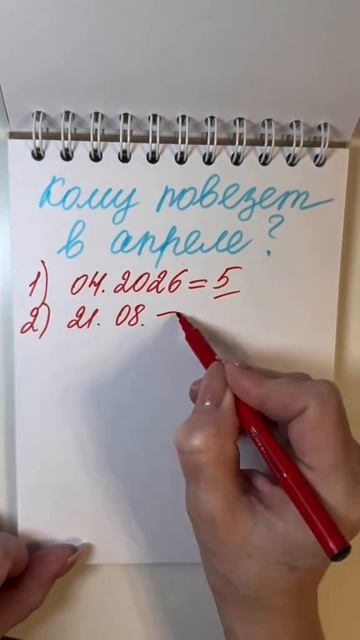 Кому повезет
в апреле?
1) 04.2026=5
2) 21. 08. –